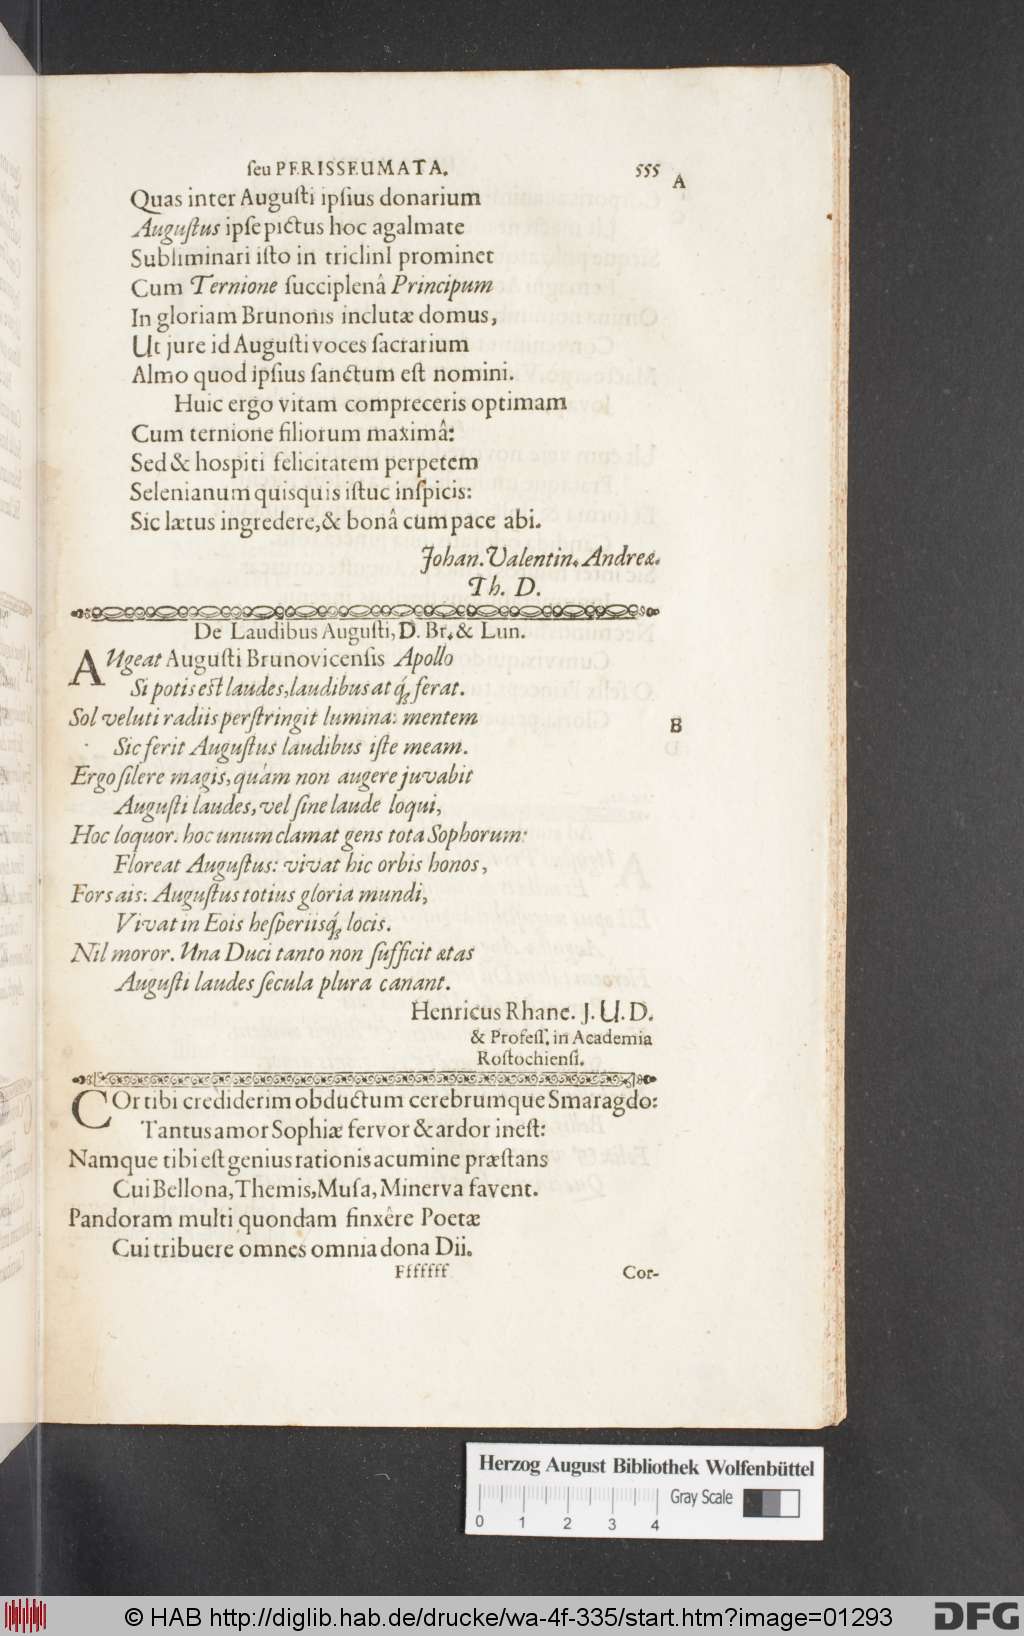 ſeu PERISSEUMATA. 555
A
Quas inter Auguſti ipſius donarium
Auguſtus ipſe pictus hoc agalmate
Subliminari iſto in triclinI prominet
Cum Ternione ſucciplenâ Principum
In gloriam Brunonis inclutæ domus,
Ut jure id Auguſti voces ſacrarium
Almo quod ipſius ſanctum eſt nomini.
Huic ergo vitam compreceris optimam
Cum ternione filiorum maximâ:
Sed & hospiti felicitatem perpetem
Selenianum quisquis iſtuc inſpicis:
Sic lætus ingredere, & bonâ cum pace abi.
Johan. Valentin. Andreæ.
Th. D.
De Laudibus Auguſti, D. Br. & Lun.
AUgeat Auguſti Brunovicenſis Apollo
Si potis eſt laudes, laudibus at q́ꝫ ferat.
Sol veluti radiis perſtringit lumina: mentem
B
Sic ferit Auguſtus laudibus iſte meam.
Ergo ſilere magis, quàm non augere juvabit
Auguſti laudes, vel ſine laude loqui,
Hoc loquor. hoc unum clamat gens tota Sophorum:
Floreat Auguſtus: vivat hic orbis honos,
Fors ais: Auguſtus totius gloria mundi,
Vivat in Eois heſperiisq́ꝫ locis.
Nil moror. Una Duci tanto non ſufficit ætas
Auguſti laudes ſecula plura canant.
Henricus Rhane. J. U. D.
& Profeſſ. in Academia
Roſtochienſi.
COr tibi crediderim obductum cerebrumque Smaragdo:
Tantus amor Sophiæ fervor & ardor ineſt:
Namque tibi eſt genius rationis acumine præſtans
Cui Bellona, Themis, Muſa, Minerva favent.
Pandoram multi quondam finxêre Poetæ
Cui tribuere omnes omnia dona Dii.
Fffffff Cor-
Herzog August Bibliothek Wolfenbüttel
Gray Scale
0 1 2 3 4
© HAB http://diglib.hab.de/drucke/wa-4f-335/start.htm?image=01293
DFG